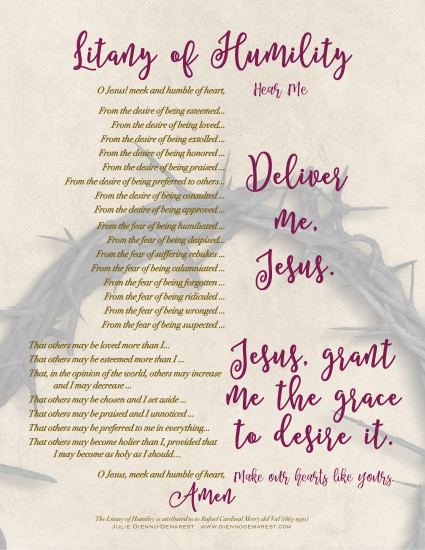 Litany of Humility
O Jesus! meek and humble of heart, Hear Me
From the desire of being esteemed...
From the desire of being loved...
From the desire of being extolled ...
From the desire of being honored ...
From the desire of being praised ...
From the desire of being preferred to others...
From the desire of being consulted ...
From the desire of being approved ...
From the fear of being humiliated ...
From the fear of being despised...
From the fear of suffering rebukes ...
From the fear of being calumniated ...
From the fear of being forgotten ...
From the fear of being ridiculed ...
From the fear of being wronged ...
From the fear of being suspected ...
Deliver
me,
Jesus.
That others may be loved more than I...
That others may be esteemed more than I ...
That, in the opinion of the world, others may increase
and I may decrease ...
That others may be chosen and I set aside ...
That others may be praised and I unnoticed ...
That others may be preferred to me in everything...
That others may become holier than I, provided that
I may become as holy as I should...
Jesus, grant
me the grace
to desire it.
O Jesus, meek and humble of heart, Make our hearts like yours.
Amen
The Litany of Humility is attributed to to Rafael Cardinal Merry del Val (1865-1930)
Julie Dienno-Demarest www.diennodemarest.com